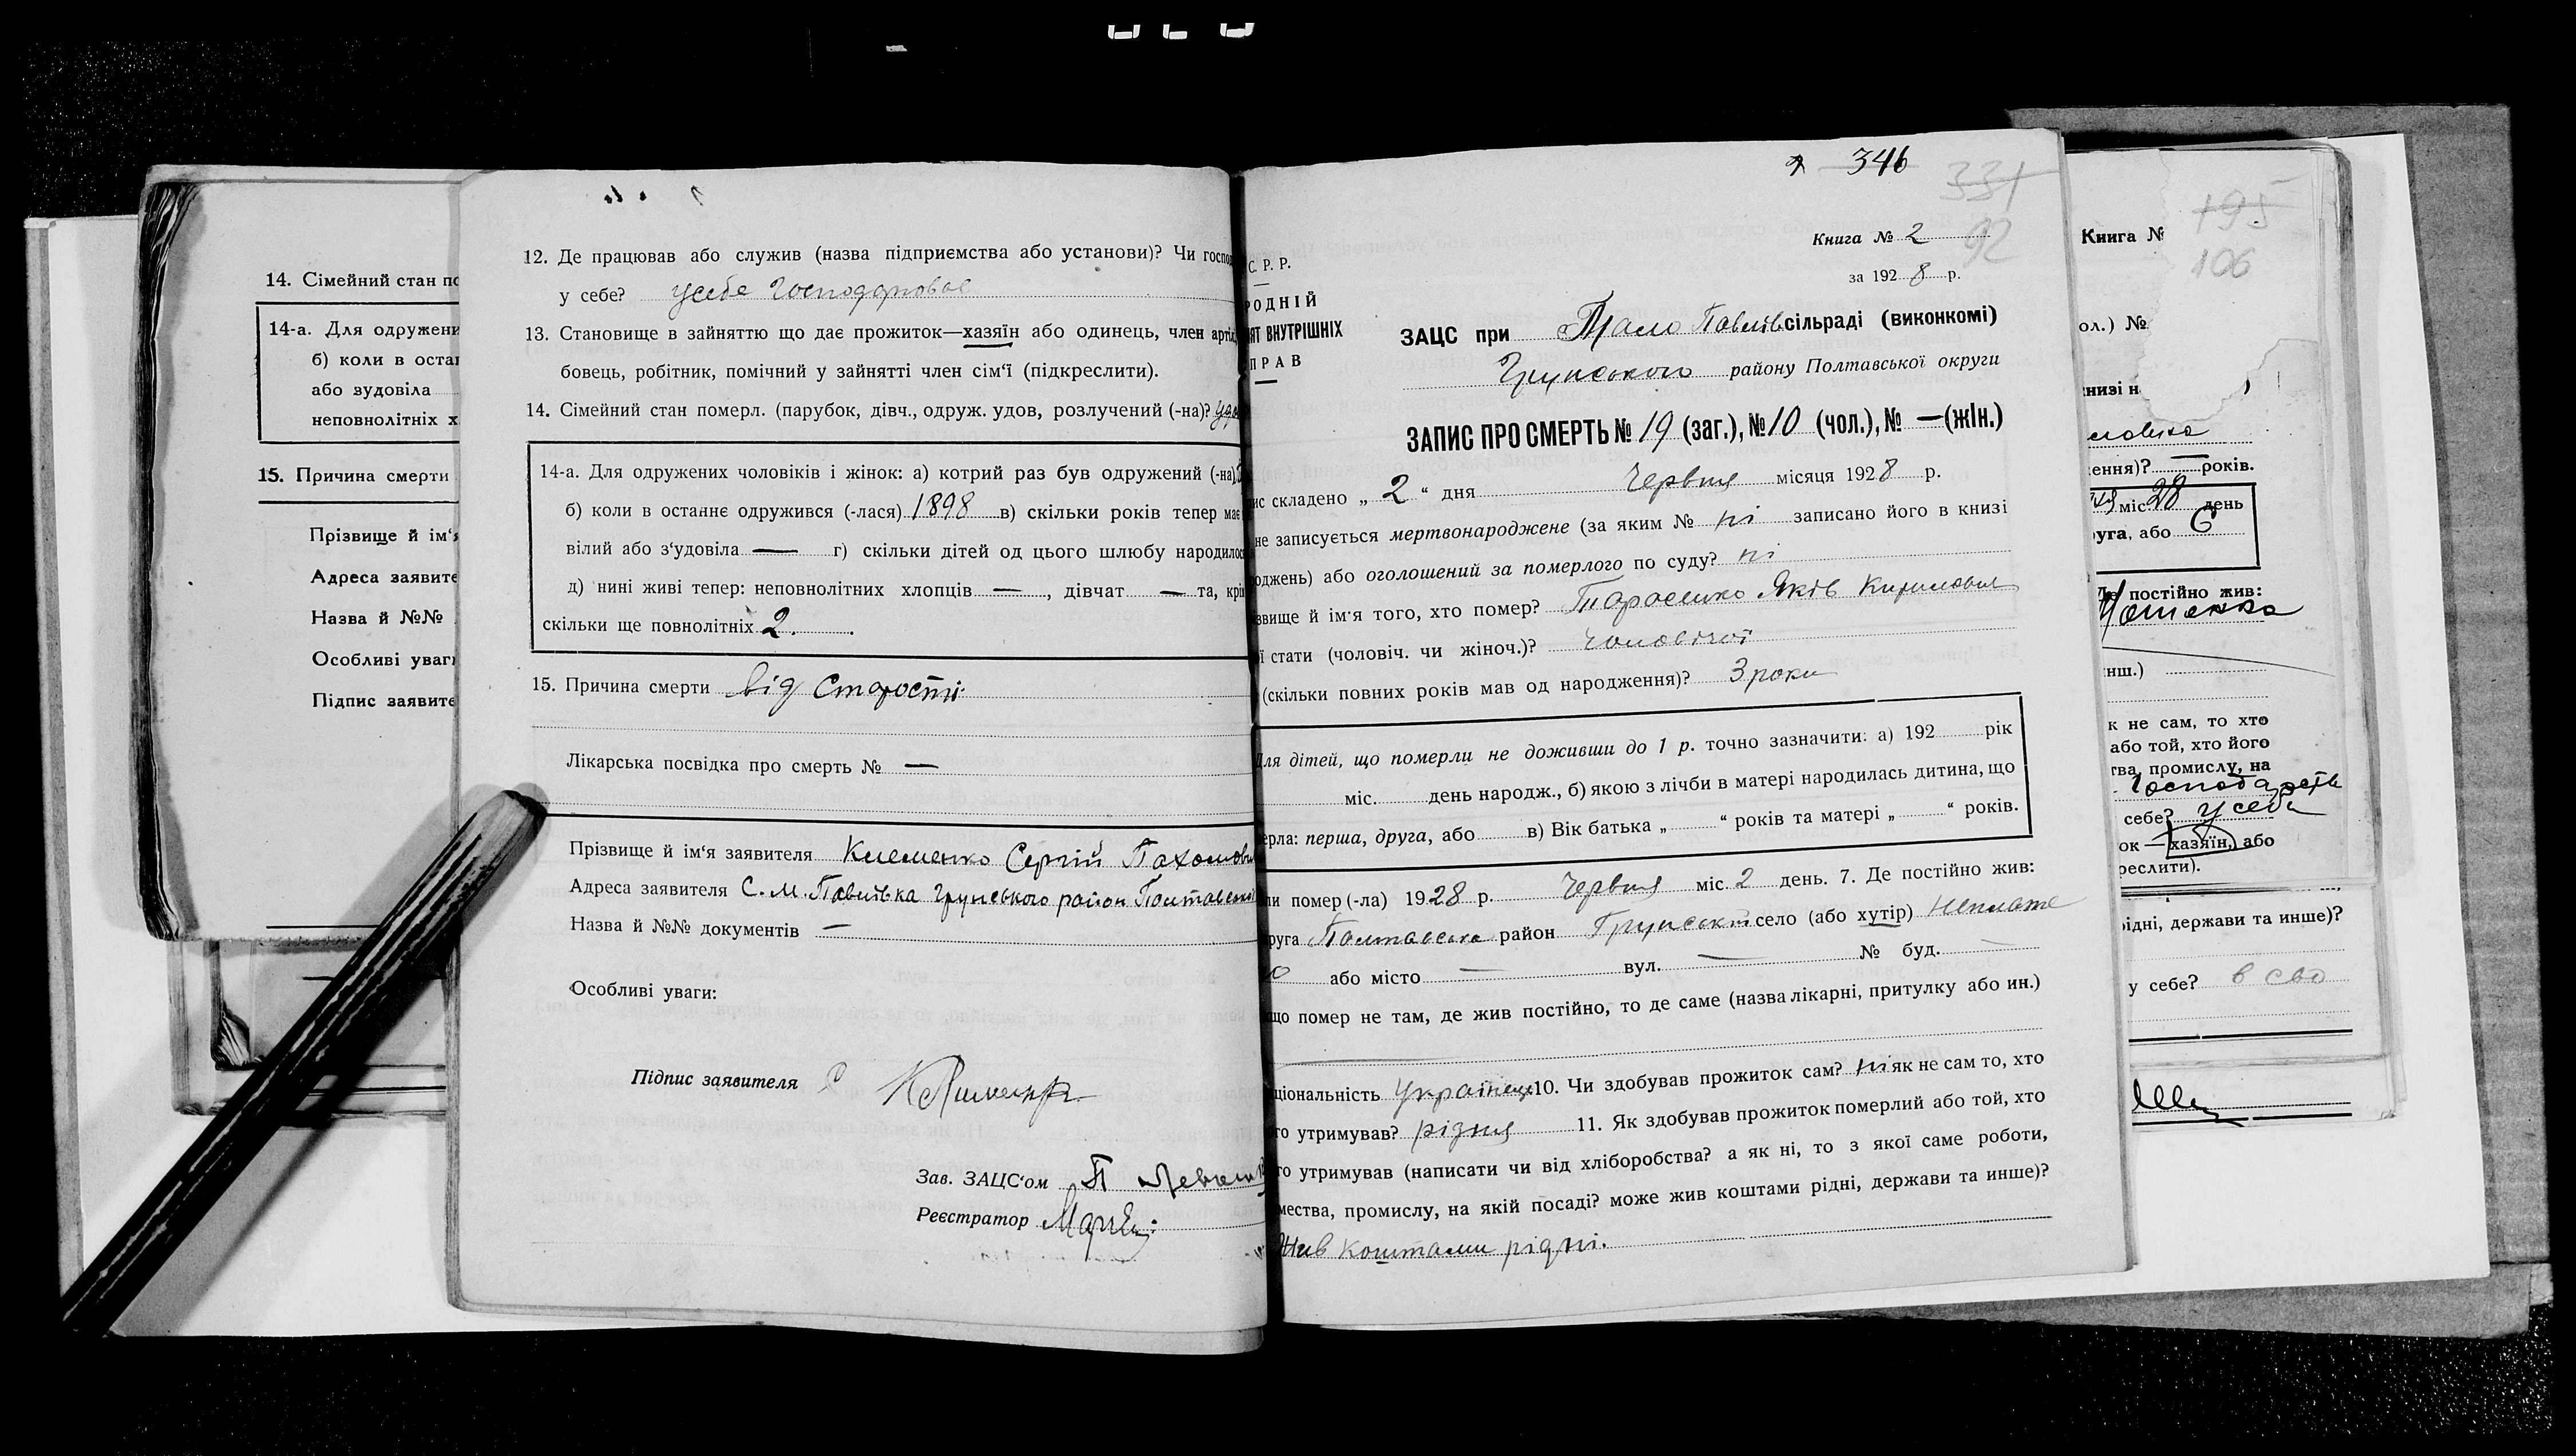 14. Сімейний стан по
14-а. Для одружени
б) коли в оста
або вдовіла
неповнолітніх х
15. Причина смерти
Прізвище й ім‘я
Адреса заявите
Назва й №№
Особливі уваги
Підпис заявите
12. Де працював або служив (назва підприємства або установи)? Чи господ
у себе? усебе господарював
13. Становище в зайняттю що дає прожиток—хазяїн або одинець, член артіл
бовець, робітник, помічний у зайнятті член сім‘ї (підкреслити).
14. Сімейний стан померл. (парубок, дівч., одруж. удов, розлучений (-на)? удов
14-а. Для одружених чоловіків і жінок: а) котрий раз був одружений (-на)
б) коли в останнє одружився (-лася) 1898 в) скільки років тепер має
вілий або з‘удовіла — г) скільки дітей од цього шлюбу народилос
д) нині живі тепер: неповнолітних хлопців —, дівчат — та, крі
скільки ще повнолітніх 2.
15. Причина смерти від старості
Лікарська посвідка про смерть № —
Прізвище й ім‘я заявителя Клеменко Сергій Пахомови
Адреса заявителя С. М. Павлівка Грунського район Полтавської
Назва й №№ документів —
Особливі уваги:
Підпис заявителя
Зав. ЗАЦС‘ом П
Реєстратор
346
331
92
Книга № 2
за 1928 р.
С. Р. Р.
РОДНІЙ
ЯТ ВНУТРІШНІХ
ПРАВ
ЗАЦС при Мало Павлів сільраді (виконкомі)
Грунського району Полтавської округи
ЗАПИС ПРО СМЕРТЬ № 19 (заг.), № 10 (чол.), № — (жін.)
ис складено „ 2 “ дня Червня місяця 1928 р.
не записується мертвонароджене (за яким № ні записано його в книзі
роджень) або оголошений за померлого по суду? ні
звище й ім‘я того, хто помер? Тарасенко Яків Кирилович
ї стати (чоловіч. чи жіноч.)? чоловічої
(скільки повних років мав од народження)? 3 роки
Для дітей, що померли не доживши до 1 р. точно зазначити: а) 192 рік
міс. день народж., б) якою з лічби в матері народилась дитина, що
ерла: перша, друга, або в) Вік батька „ “ років та матері „ “ років.
ли помер (-ла) 1928 р. Червня міс. 2 день. 7. Де постійно жив:
круга Полтавська район Грунськ село (або хутір)
або місто — вул. — № буд. —
що помер не там, де жив постійно, то де саме (назва лікарні, притулку або ин.)
ціональність Українець 10. Чи здобував прожиток сам? ні як не сам то, хто
го утримував? рідня 11. Як здобував прожиток померлий або той, хто
го утримував (написати чи від хліборобства? а як ні, то з якої саме роботи,
мества, промислу, на якій посаді? може жив коштами рідні, держави та инше)?
Жив коштами рідні.
Книга №
195
106
ол.) №
книзі н
ловіка
ення)? — років.
міс 28 день
руга, або 6
Де постійно жив:
нш.)
к не сам, то хто
або той, хто його
тва, промислу, на
господарств
себе? у себе
ок — хазяїн, або
реслити).
рідні, держави та инше)?
у себе? в сво